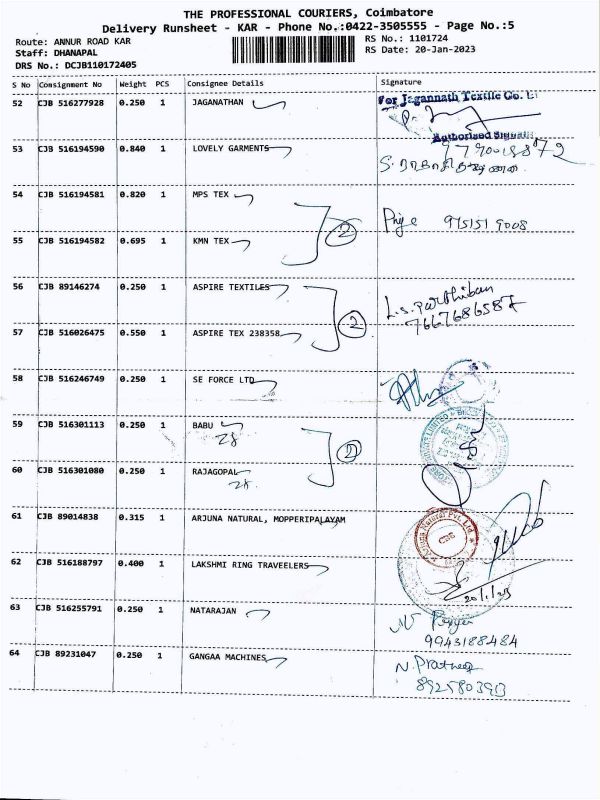 THE PROFESSIONAL COURIERS, Coimbatore
Delivery Runsheet - KAR - Phone No.:0422-3505555 - Page No.:5
Route: ANNUR ROAD KAR RS No.: 1101724
Staff: DHANAPAL RS Date: 20-Jan-2023
DRS No.: DCJB110172405
S No Consignment No Weight PCS Consignee Details Signature
52 CJB 516277928 0.250 1 JAGANATHAN For Jagannath Textile Co.
Authorised
53 CJB 516194590 0.840 1 LOVELY GARMENTS
54 CJB 516194581 0.820 1 MPS TEX
2 Priya 9751519008
55 CJB 516194582 0.695 1 KMN TEX
56 CJB 89146274 0.250 1 ASPIRE TEXTILES L.S. Parthiban
2 7667686587
57 CJB 516026475 0.550 1 ASPIRE TEX 238358
58 CJB 516246749 0.250 1 SE FORCE LTD
59 CJB 516301113 0.250 1 BABU
28 2
60 CJB 516301080 0.250 1 RAJAGOPAL
28
61 CJB 89014838 0.315 1 ARJUNA NATURAL, MOPPERIPALAYAM
Arjuna Natural Pvt. Ltd.
CBE
62 CJB 516188797 0.400 1 LAKSHMI RING TRAVEELERS
20/1/23
63 CJB 516255791 0.250 1 NATARAJAN
9943188484
64 CJB 89231047 0.250 1 GANGAA MACHINES N. Pratheep